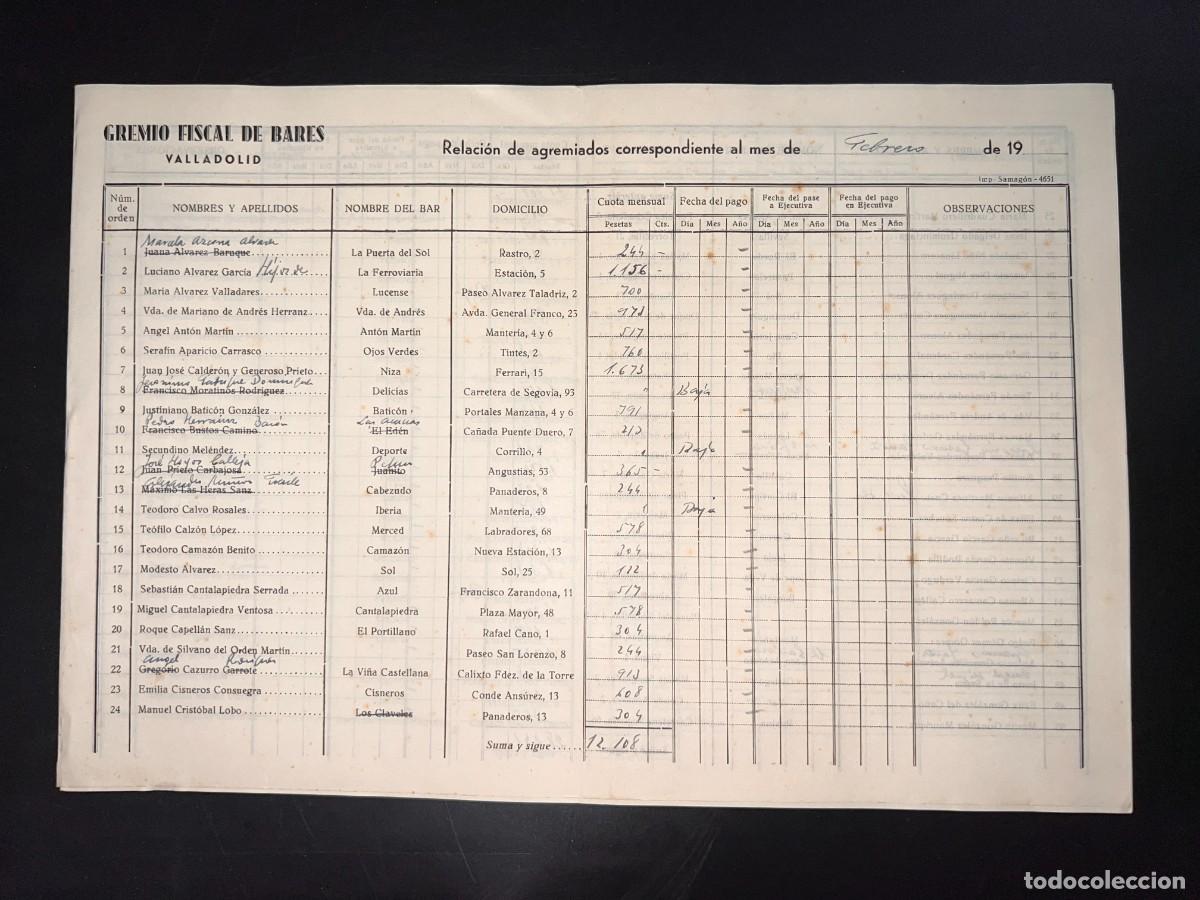 GREMIO FISCAL DE BARES
VALLADOLID
Relación de agremiados correspondiente al mes de Febrero de 19
Imp. Samagón - 4651
Núm. de orden NOMBRES Y APELLIDOS NOMBRE DEL BAR DOMICILIO Cuota mensual Fecha del pago Fecha del pase a Ejecutiva Fecha del pago en Ejecutiva OBSERVACIONES
Pesetas Cts. Día Mes Año Día Mes Año Día Mes Año
alvarez
1 Juana Alvarez Baruque La Puerta del Sol Rastro, 2 244 -
2 Luciano Alvarez García Hijos de La Ferroviaria Estación, 5 1.156 -
3 Maria Alvarez Valladares Lucense Paseo Alvarez Taladriz, 2 700
4 Vda. de Mariano de Andrés Herranz Vda. de Andrés Avda. General Franco, 23
5 Angel Antón Martín Antón Martín Mantería, 4 y 6 517
6 Serafín Aparicio Carrasco Ojos Verdes Tintes, 2 760
7 Juan José Calderón y Generoso Prieto Niza Ferrari, 15 1.673
8 Francisco Moratinos Rodríguez Delicias Carretera de Segovia, 93 " Baja
9 Justiniano Baticón González Baticón Portales Manzana, 4 y 6 791
Pedro
10 Francisco Bustos Camino El Edén Cañada Puente Duero, 7
11 Secundino Meléndez Deporte Corrillo, 4 Baja
José Calleja
12 Juan Prieto Carbajosa Juanito Angustias, 53 365 -
13 Máximo Las Heras Sanz Cabezudo Panaderos, 8 244
14 Teodoro Calvo Rosales Iberia Mantería, 49 Baja
15 Teófilo Calzón López Merced Labradores, 68 578
16 Teodoro Camazón Benito Camazón Nueva Estación, 13 304
17 Modesto Alvarez Sol Sol, 25 122
18 Sebastián Cantalapiedra Serrada Azul Francisco Zarandona, 11 517
19 Miguel Cantalapiedra Ventosa Cantalapiedra Plaza Mayor, 48 578
20 Roque Capellán Sanz El Portillano Rafael Cano, 1 304
21 Vda. de Silvano del Orden Martín Paseo San Lorenzo, 8 244
Angel
22 Gregorio Cazurro Garrote La Viña Castellana Calixto Fdez. de la Torre 913
23 Emilia Cisneros Consuegra Cisneros Conde Ansúrez, 13 608
24 Manuel Cristóbal Lobo Los Claveles Panaderos, 13 304
Suma y sigue 12.108
todocoleccion